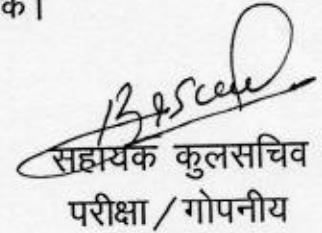 क।
सहायक कुलसचिव
परीक्षा / गोपनीय